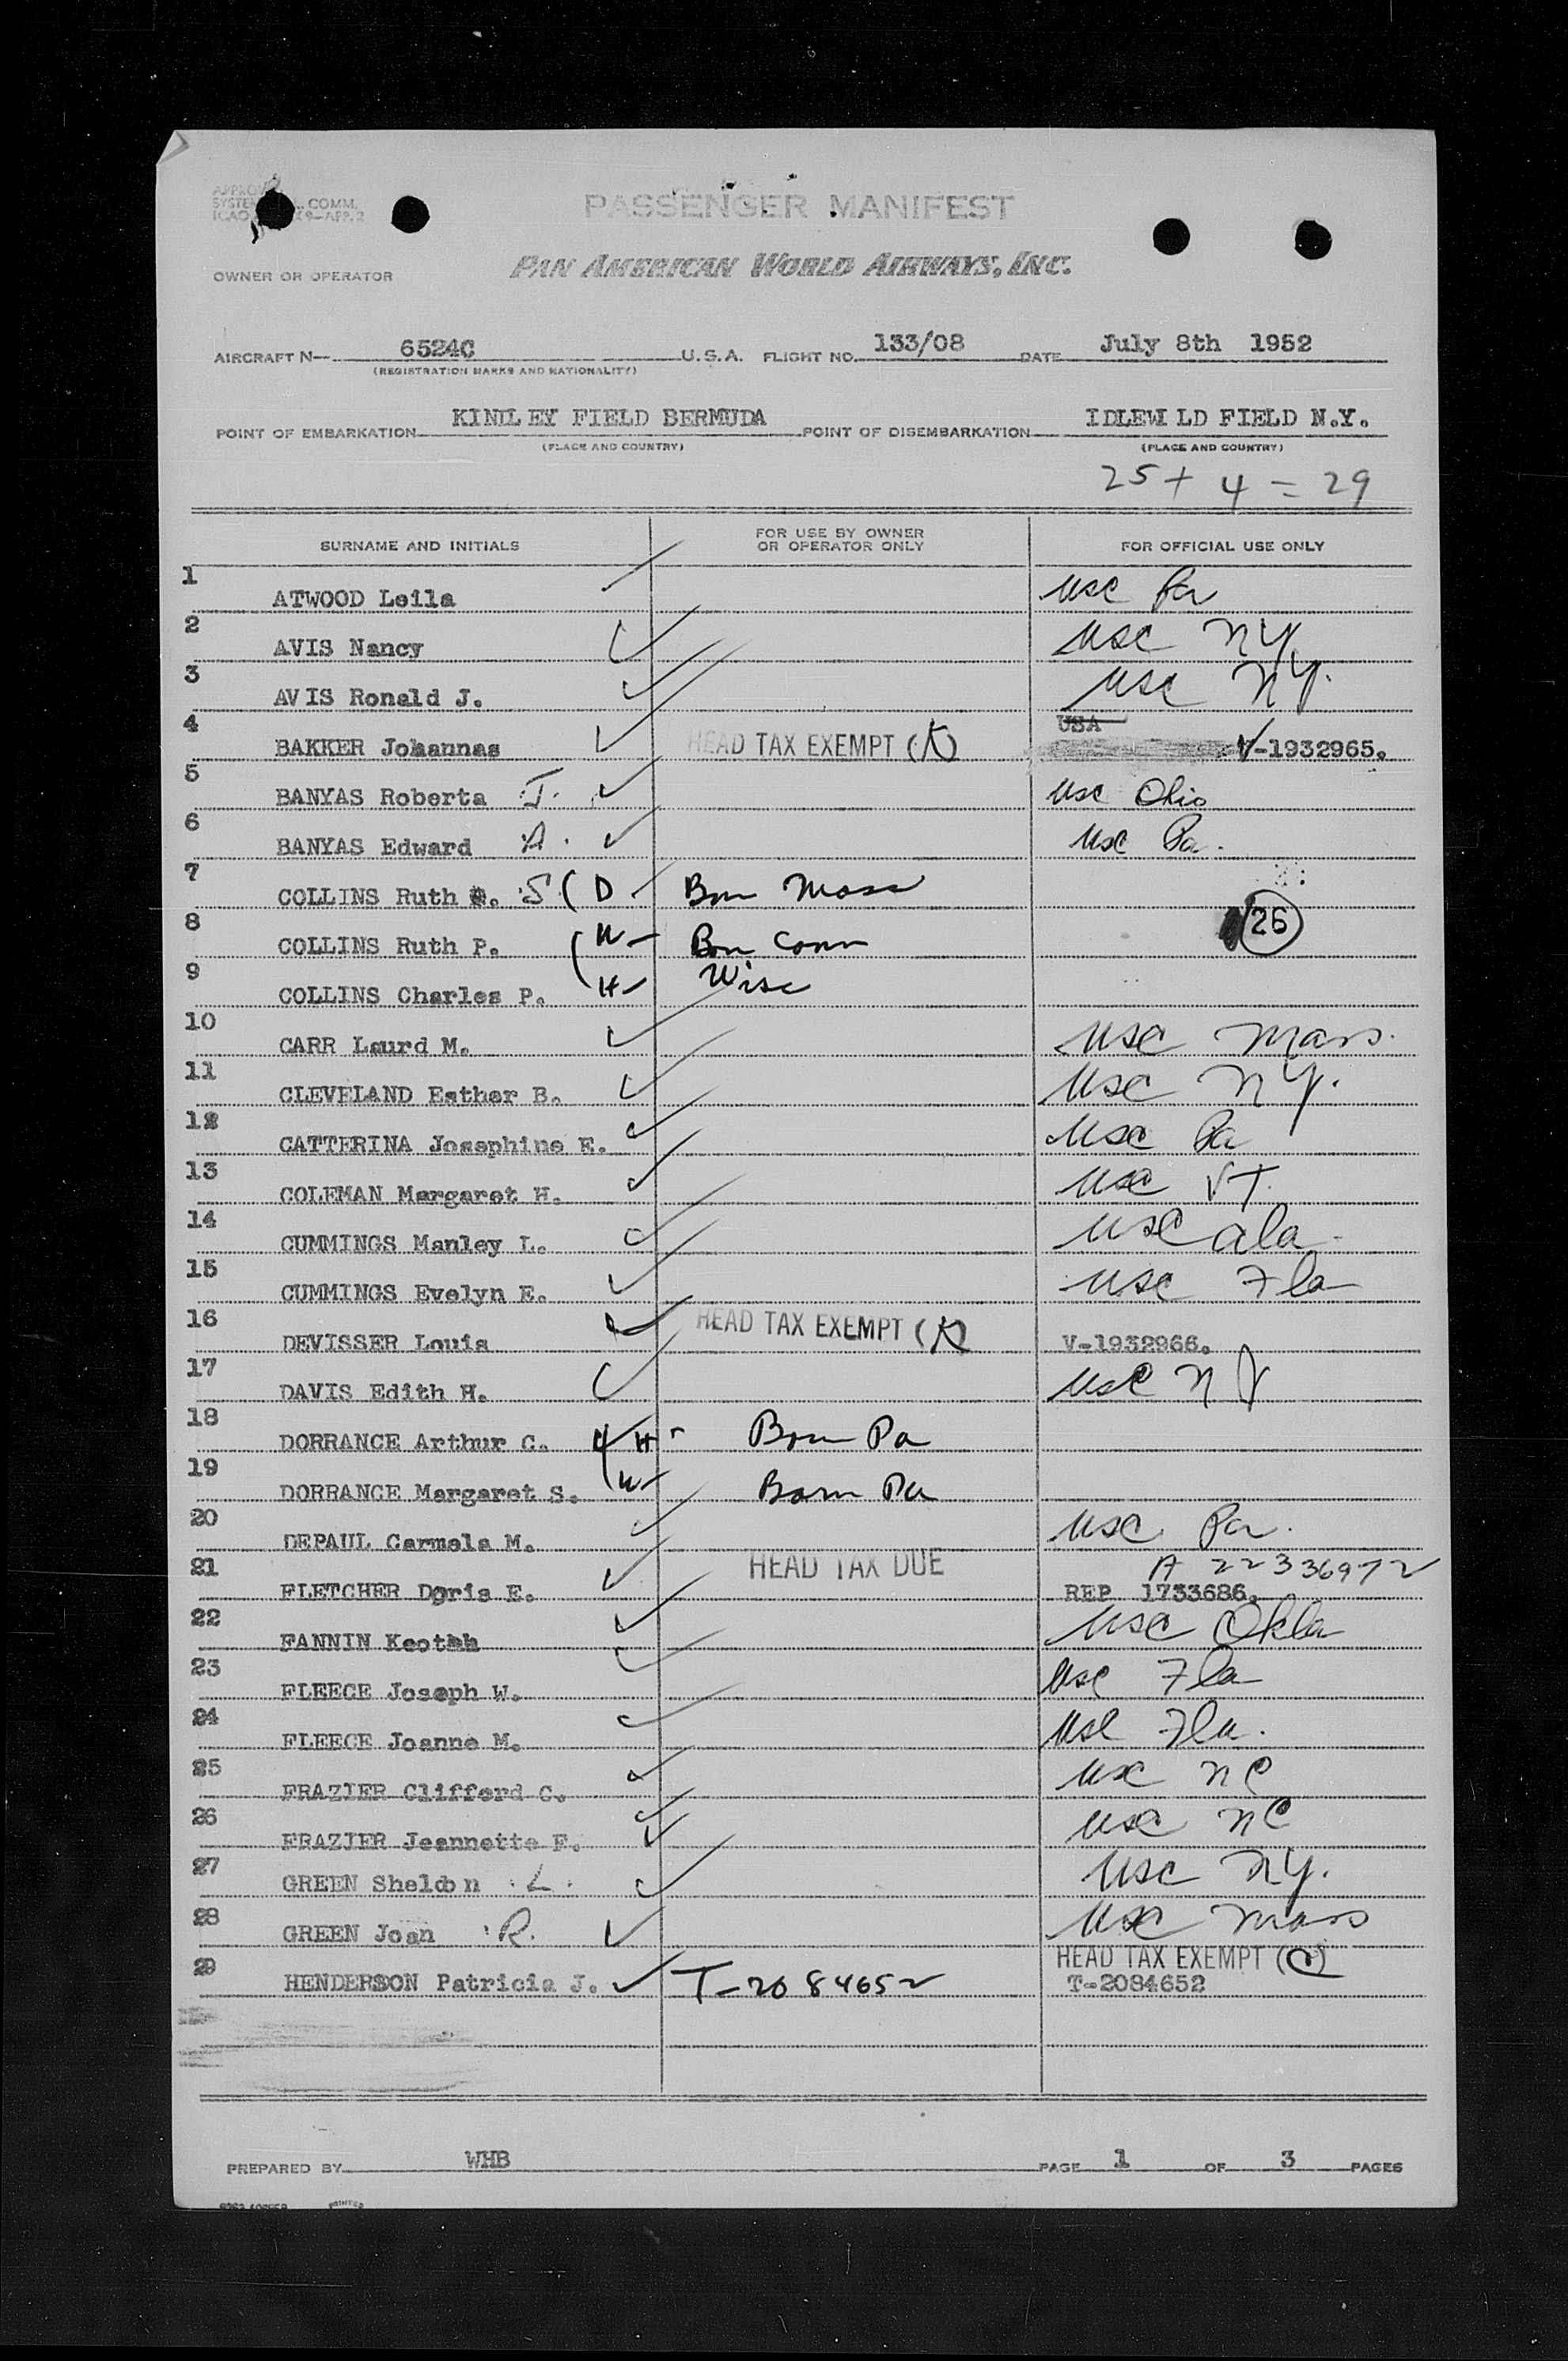 PASSENGER MANIFEST
OWNER OR OPERATOR PAN AMERICAN WORLD AIRWAYS, INC.
AIRCRAFT N— 6524C U.S.A. FLIGHT NO. 133/08 DATE July 8th 1952
(REGISTRATION MARKS AND NATIONALITY)
POINT OF EMBARKATION KINDLEY FIELD BERMUDA POINT OF DISEMBARKATION IDLEWILD FIELD N.Y.
(PLACE AND COUNTRY) (PLACE AND COUNTRY)
25 + 4 = 29
SURNAME AND INITIALS FOR USE BY OWNER OR OPERATOR ONLY FOR OFFICIAL USE ONLY
1 ATWOOD Leila usc Pa
2 AVIS Nancy usc NY
3 AVIS Ronald J. usc NY.
4 BAKKER Johannas HEAD TAX EXEMPT (K) USA V-1932965.
5 BANYAS Roberta J. usc Ohio
6 BANYAS Edward A. usc Pa.
7 COLLINS Ruth S ( D Born Mass
8 COLLINS Ruth P. ( W Born Conn 26
9 COLLINS Charles P. ( H Wisc
10 CARR Laurd M. usc Mass.
11 CLEVELAND Esther B. usc NY.
12 CATTERINA Josephine E. usc Pa
13 COLEMAN Margaret H. usc VT.
14 CUMMINGS Manley L. usc ala.
15 CUMMINGS Evelyn E. usc Fla
16 DEVISSER Louis HEAD TAX EXEMPT (K) V-1932966.
17 DAVIS Edith H. usc NY
18 DORRANCE Arthur C. H Born Pa
19 DORRANCE Margaret S. (W Born Pa
20 DEPAUL Carmela M. usc Pa.
21 FLETCHER Doris E. HEAD TAX DUE A 22336972
REP 1733686.
22 FANNIN Keothh usc Okla
23 FLEECE Joseph W. usc Fla
24 FLEECE Joanne M. usc Fla.
25 FRAZIER Clifford C. usc NC
26 FRAZIER Jeannette F. usc NC
27 GREEN Sheldon L. usc NY.
28 GREEN Joan R. usc Mass
29 HENDERSON Patricia J. T-2084652 HEAD TAX EXEMPT (C)
T-2084652
PREPARED BY WHB PAGE 1 OF 3 PAGES